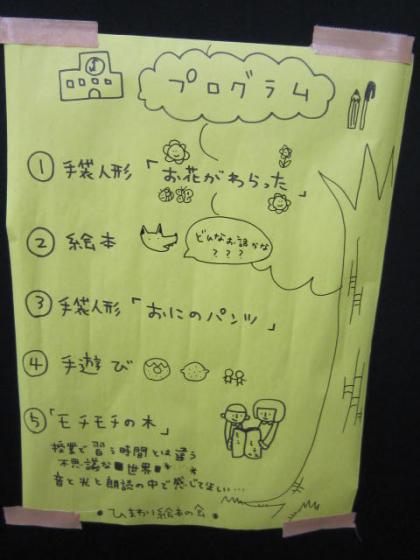 プログラム
① 手袋人形 「お花がわらった」
② 絵本
どんなお話かな
? ? ?
③ 手袋人形 「おにのパンツ」
④ 手遊び
⑤ 「モチモチの木」
授業で習う時間とは違う
不思議な■世界■…
音と光と朗読の中で感じて下さい…
・ひまわり絵本の会・